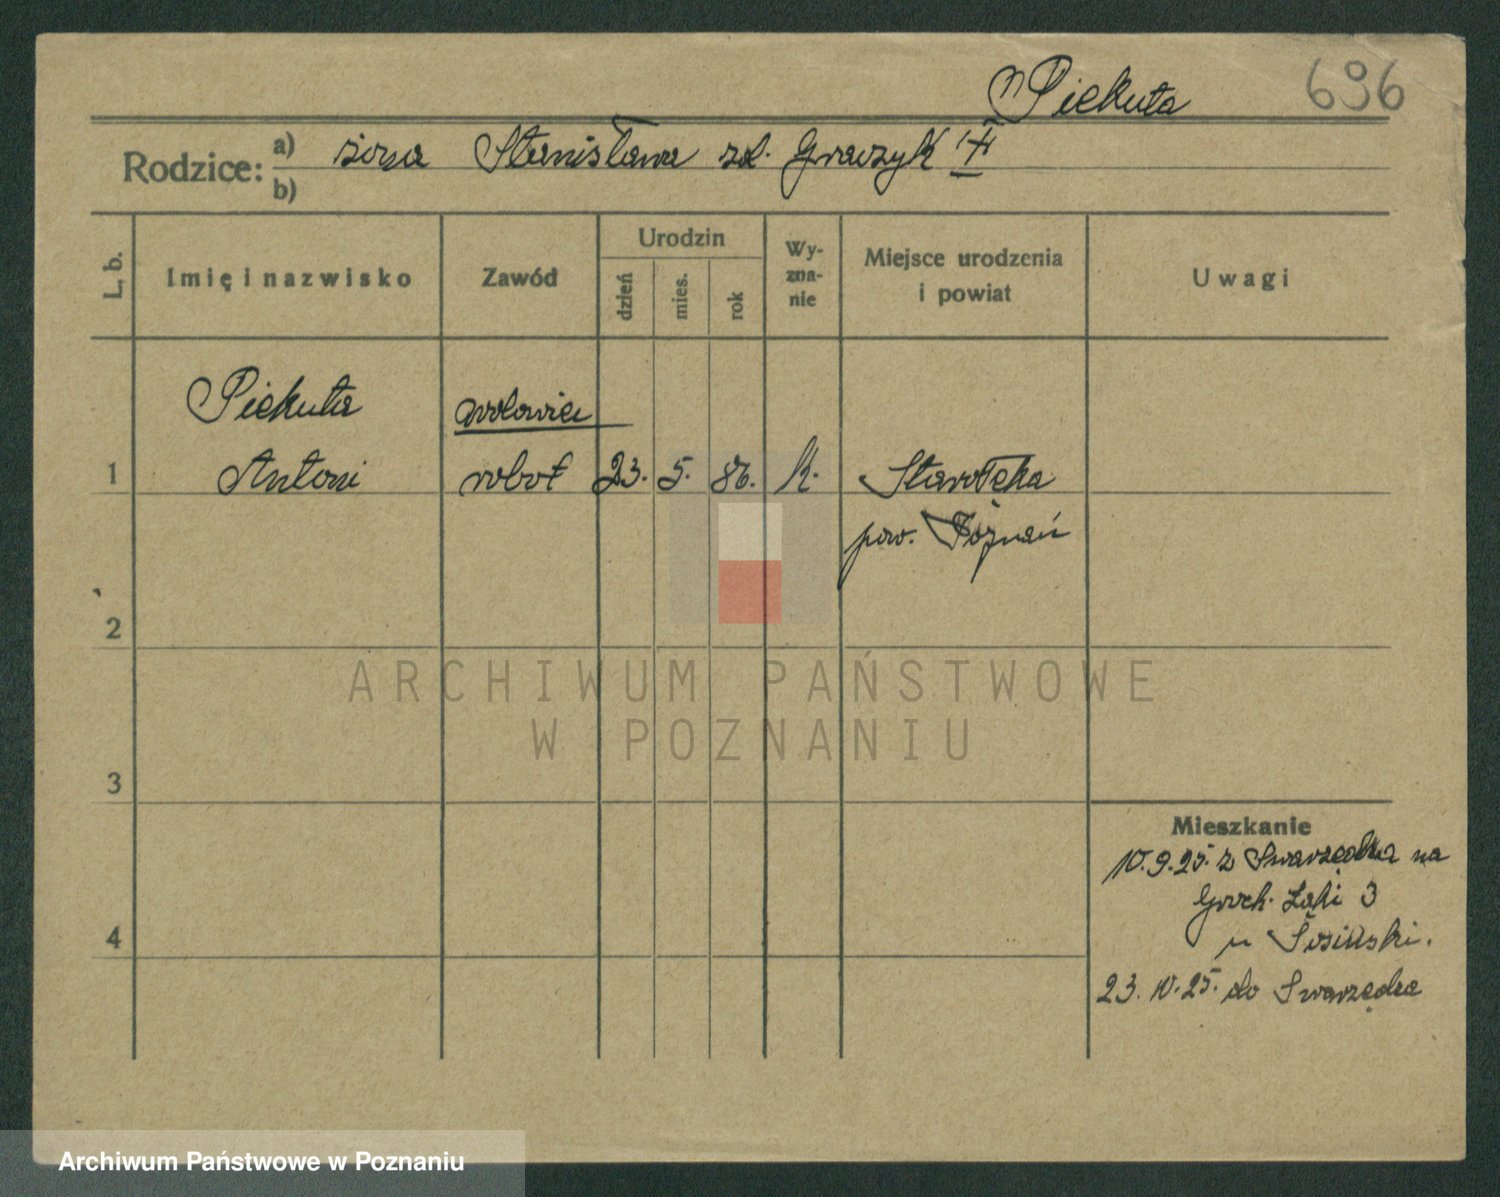 Piekuta 696
Rodzice: a) żona Stanisława zd. Graczyk
b)
L. b. Imię i nazwisko Zawód Urodzin Wy-zna-nie Miejsce urodzenia i powiat Uwagi
dzień mies. rok
Piekuta wdowiec
1 Antoni robot 23. 5. 86. k. Starołęka
pow. Poznań
2
ARCHIWUM PAŃSTWOWE
W POZNANIU
3
Mieszkanie
10.9.25. z Swarzędza na
4 Łąki 3
u
23.10.25. do Swarzędza
Archiwum Państwowe w Poznaniu